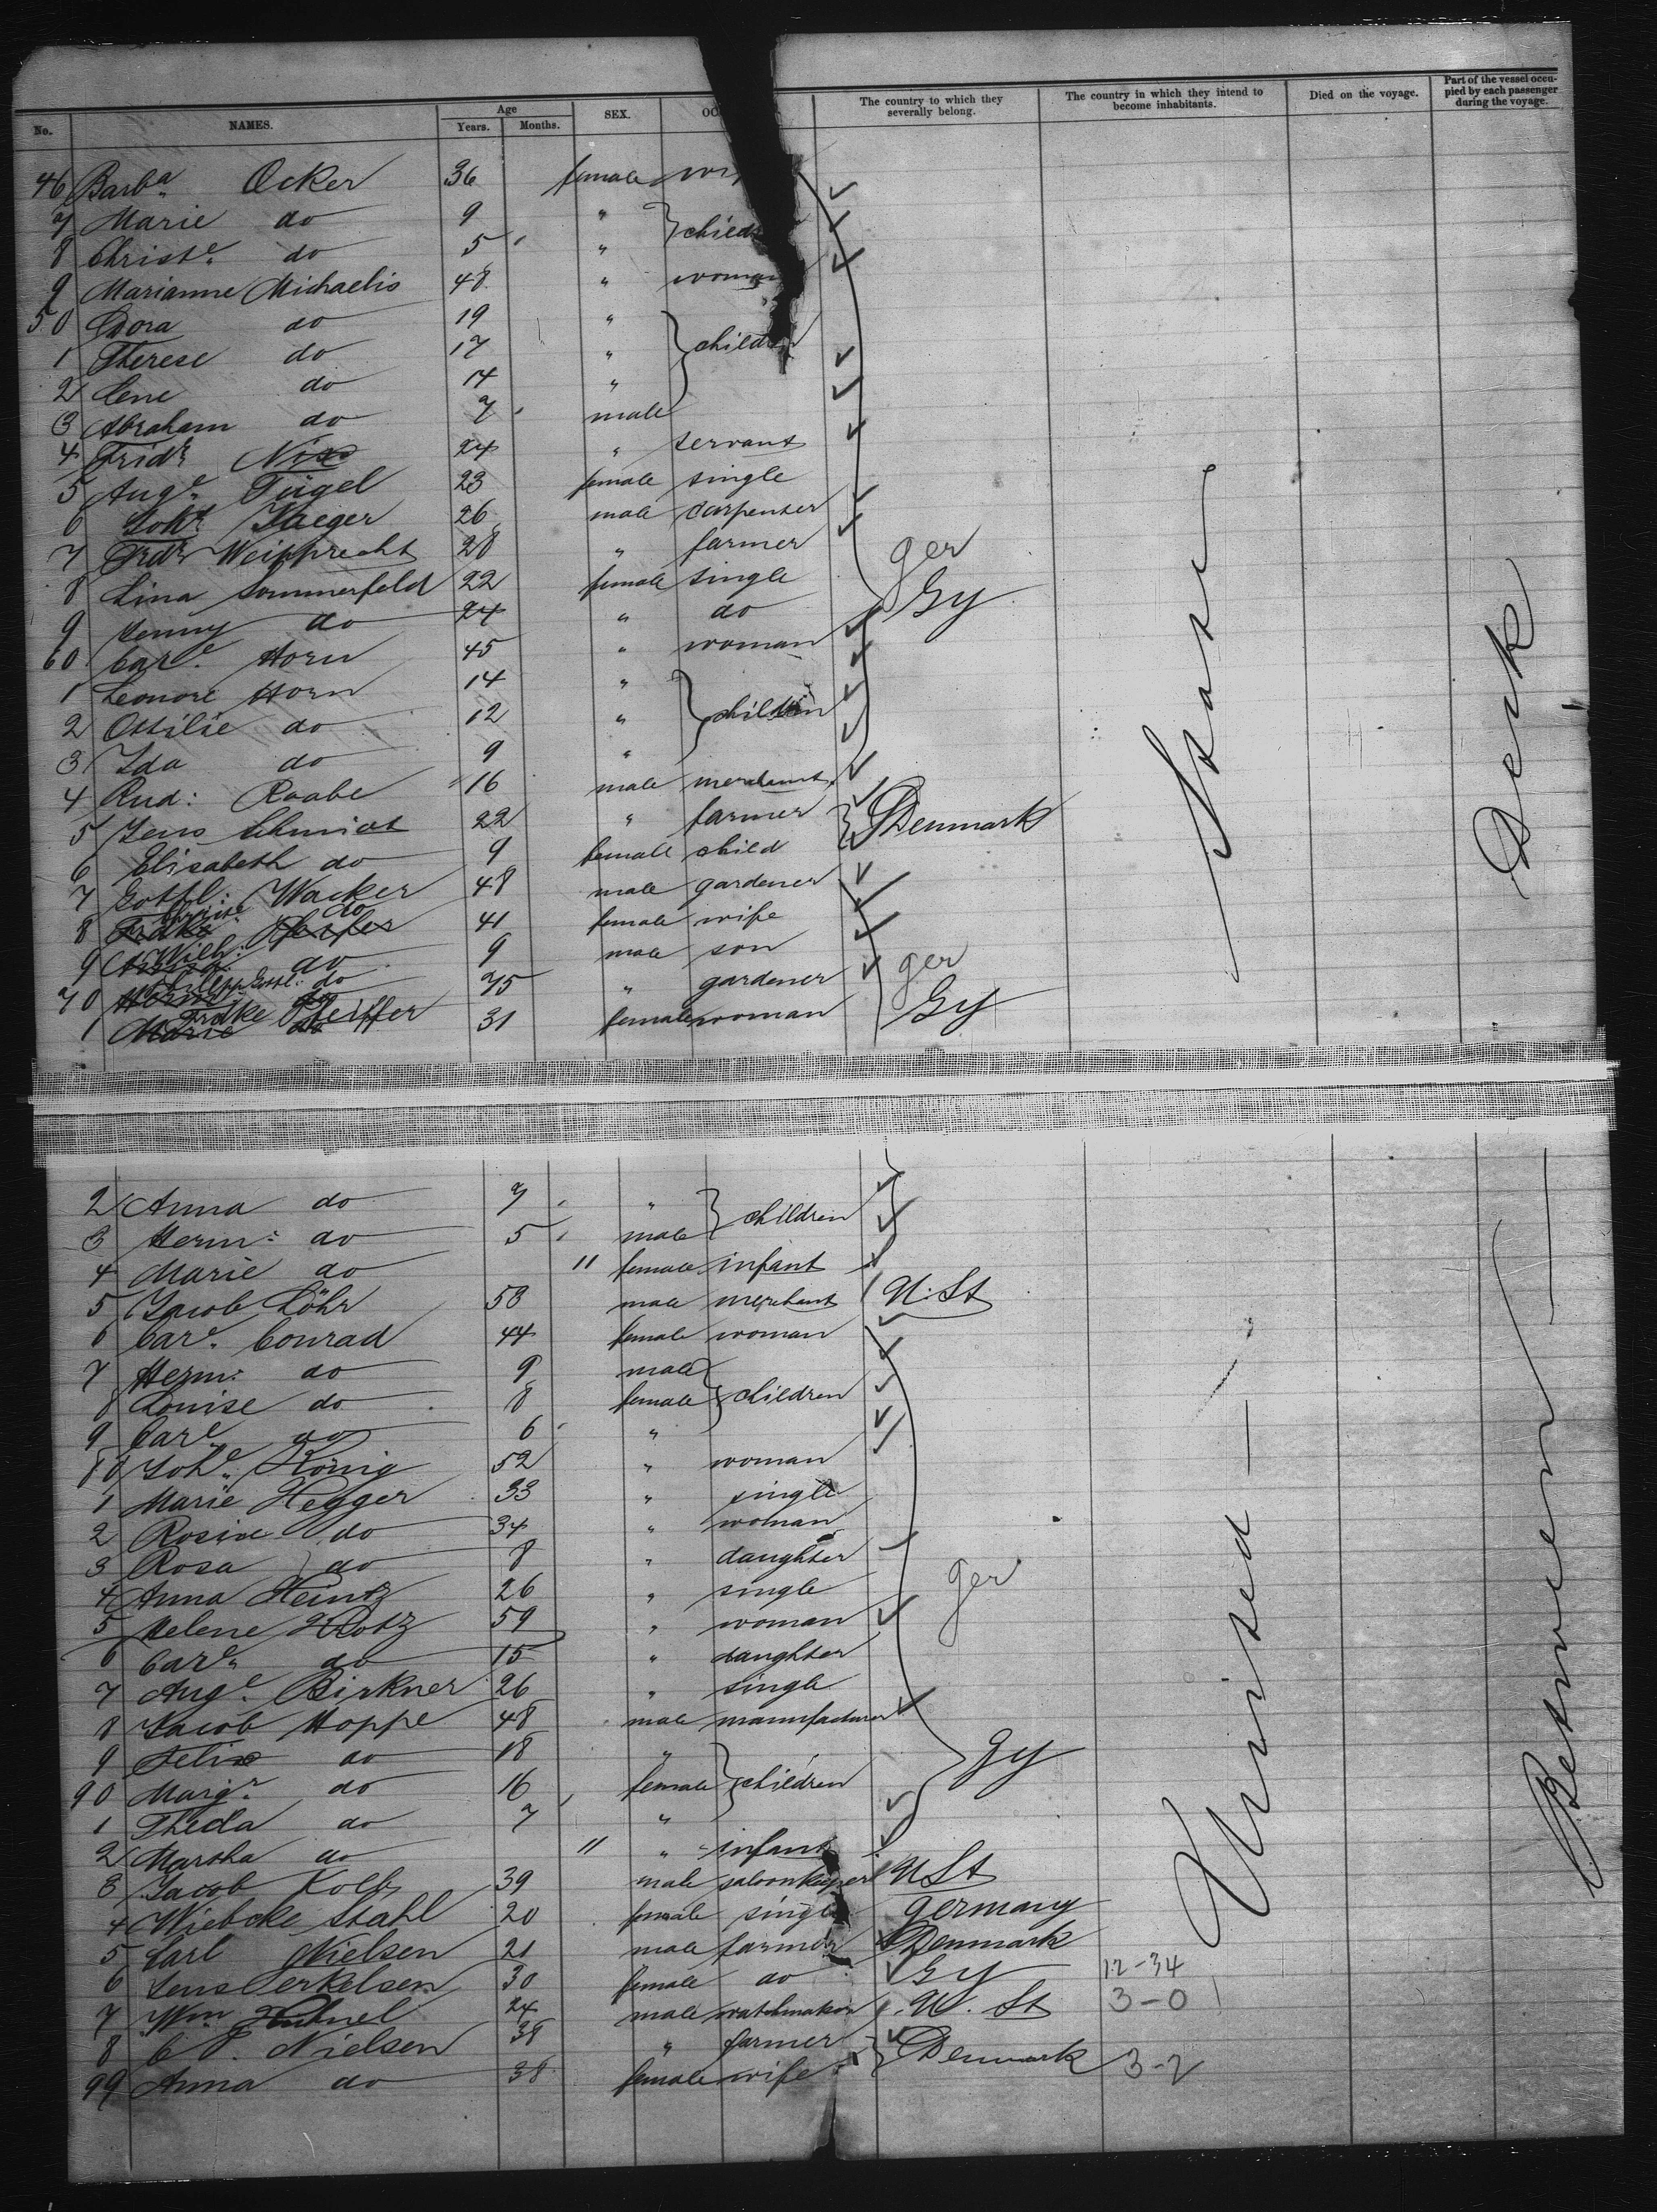 No. NAMES. Age Years. Months. SEX. The country to which they severally belong. The country in which they intend to become inhabitants. Died on the voyage. Part of the vessel occupied by each passenger during the voyage.
46 Barba Ocker 36 female
7 Marie do 9 "
8 Christe do 5 " child
9 Marianne Michaelis 48 " woman
50 Dora do 19 "
1 Therese do 17 " children
2 Lene do 14 "
3 Abraham do 7 male
4 Fridr Nix 24 " servant
5 Auge Tügel 23 female single
6 Jaeger 26 male carpenter
7 Frdr Weipprecht 28 " farmer ger
8 Lina Sommerfeld 22 female single Gy
9 Jenny do 24 " do
60 Care Horn 45 " woman
1 Leonore Horn 14 "
2 Ottilie do 12 " children
3 Ida do 9 "
4 Rud: Raabe 16 male merchant
5 Jens Schmidt 22 " farmer Denmark
6 Elisabeth do 9 female child
7 Gottl: Wacker 48 male gardener
8 do 41 female wife
9 Wilh: do 9 male son
70 do 75 " gardener ger
1 Frdke Pfeiffer 31 female woman Gy
States
Deck
2 Anna do 7 "
3 Herm: do 5 male children
4 Marie do 11 female infant
5 Jacob Löhr 53 male merchant U. St
6 Care Conrad 44 female woman
7 Herm: do 9 male
8 Louise do 8 female children
9 Care do 6 "
80 Johe König 52 " woman
1 Marie Hegger 33 " single
2 Rosine do 34 " woman
3 Rosa do 8 " daughter
4 Anna Heintz 26 " single ger
5 Helene 59 " woman
6 Care do 15 " daughter
7 Auge Birkner 26 " single
8 Jacob Hoppe 48 male manufacturer
9 Felix do 18 "
90 Margr do 16 female children gy
1 Theda do 7 "
2 Martha do 11 " infant
3 Jacob Kolb 39 male saloonkeeper U St
4 Wiebcke Stahl 20 female single Germany
5 Carl Nielsen 21 male farmer Denmark
6 Jens Terkelsen 30 female do Gy 12-34
7 Wm 24 male watchmaker U. St 3-0
8 C P. Nielsen 38 " farmer
99 Anna do 38 female wife Denmark 3-2
United
Between